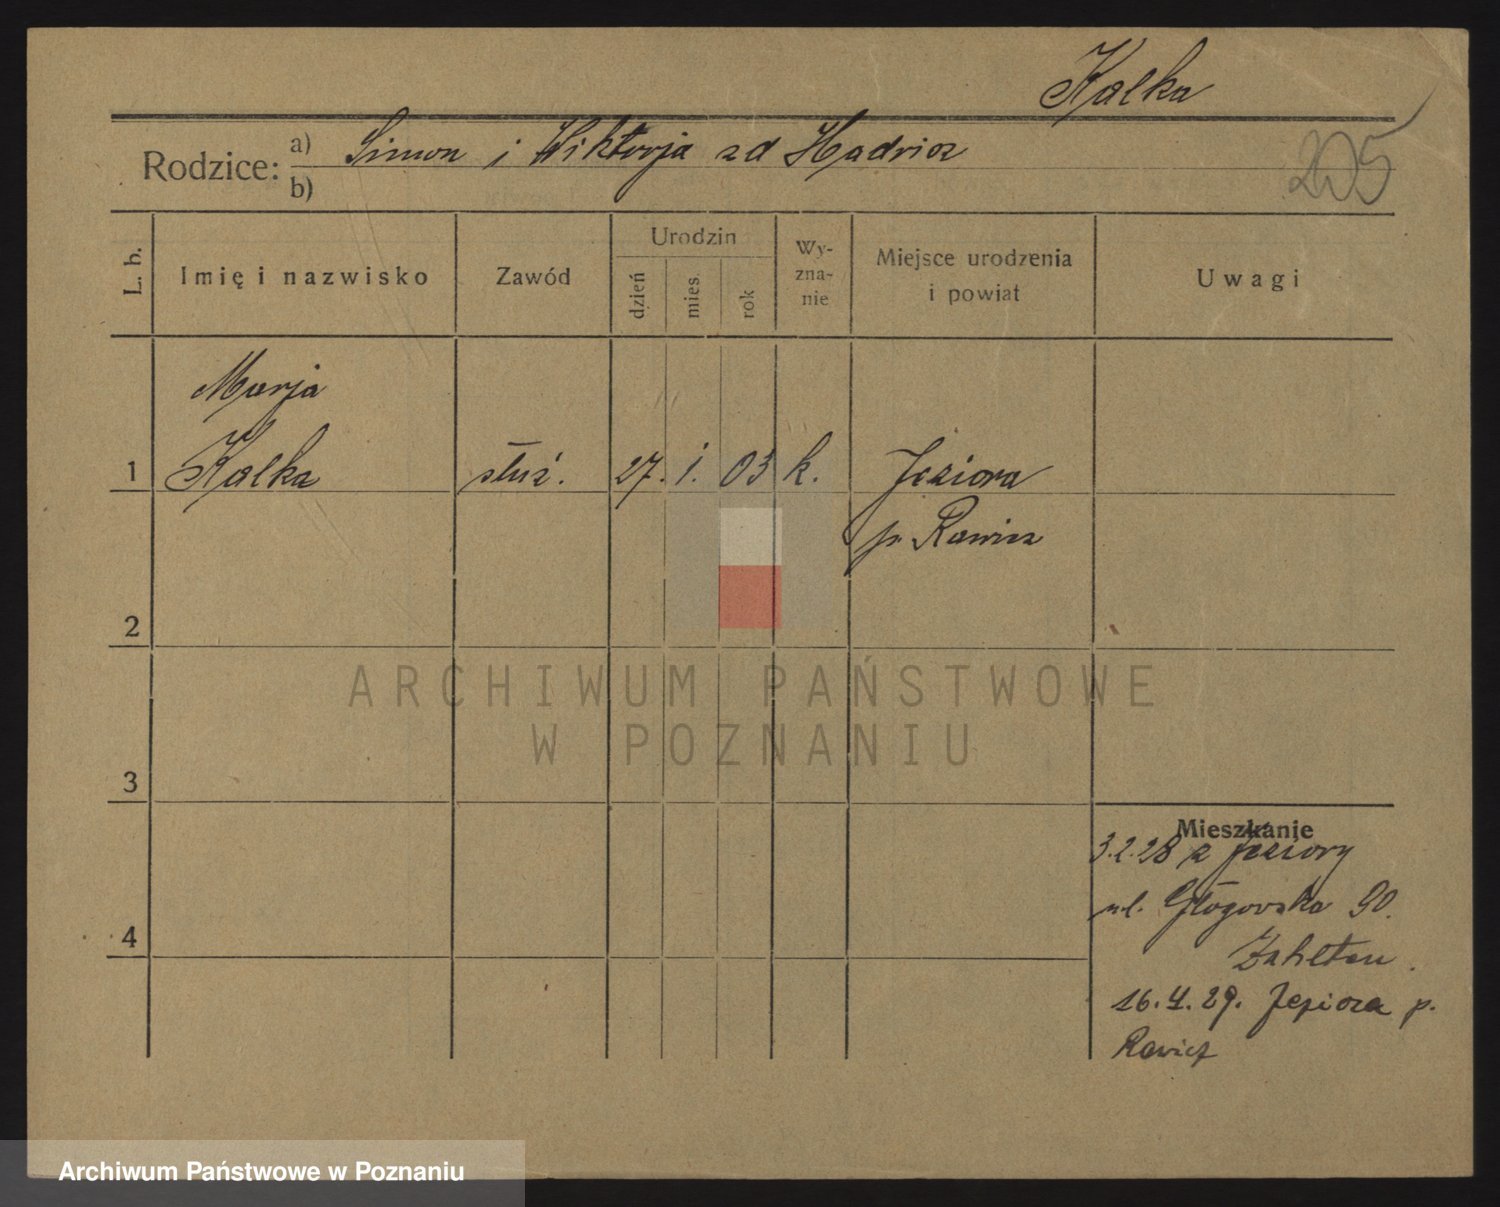 Kalka
Rodzice: a) Simon i Wiktorja zd Hadrioz
b)
205
L. b.
Imię i nazwisko
Zawód
Urodzin
dzień
mies.
rok
Wy-
zna-
nie
Miejsce urodzenia
i powiat
Uwagi
Marja
1 Kalka służ. 27. 1. 03 k. Jeziora
p. Rawicz
2
3
4
Mieszkanie
3.2.28 z Jeziory
ul. Głogowska 90.
16.4.29. Jeziora p.
Rawicz
ARCHIWUM PAŃSTWOWE
W POZNANIU
Archiwum Państwowe w Poznaniu